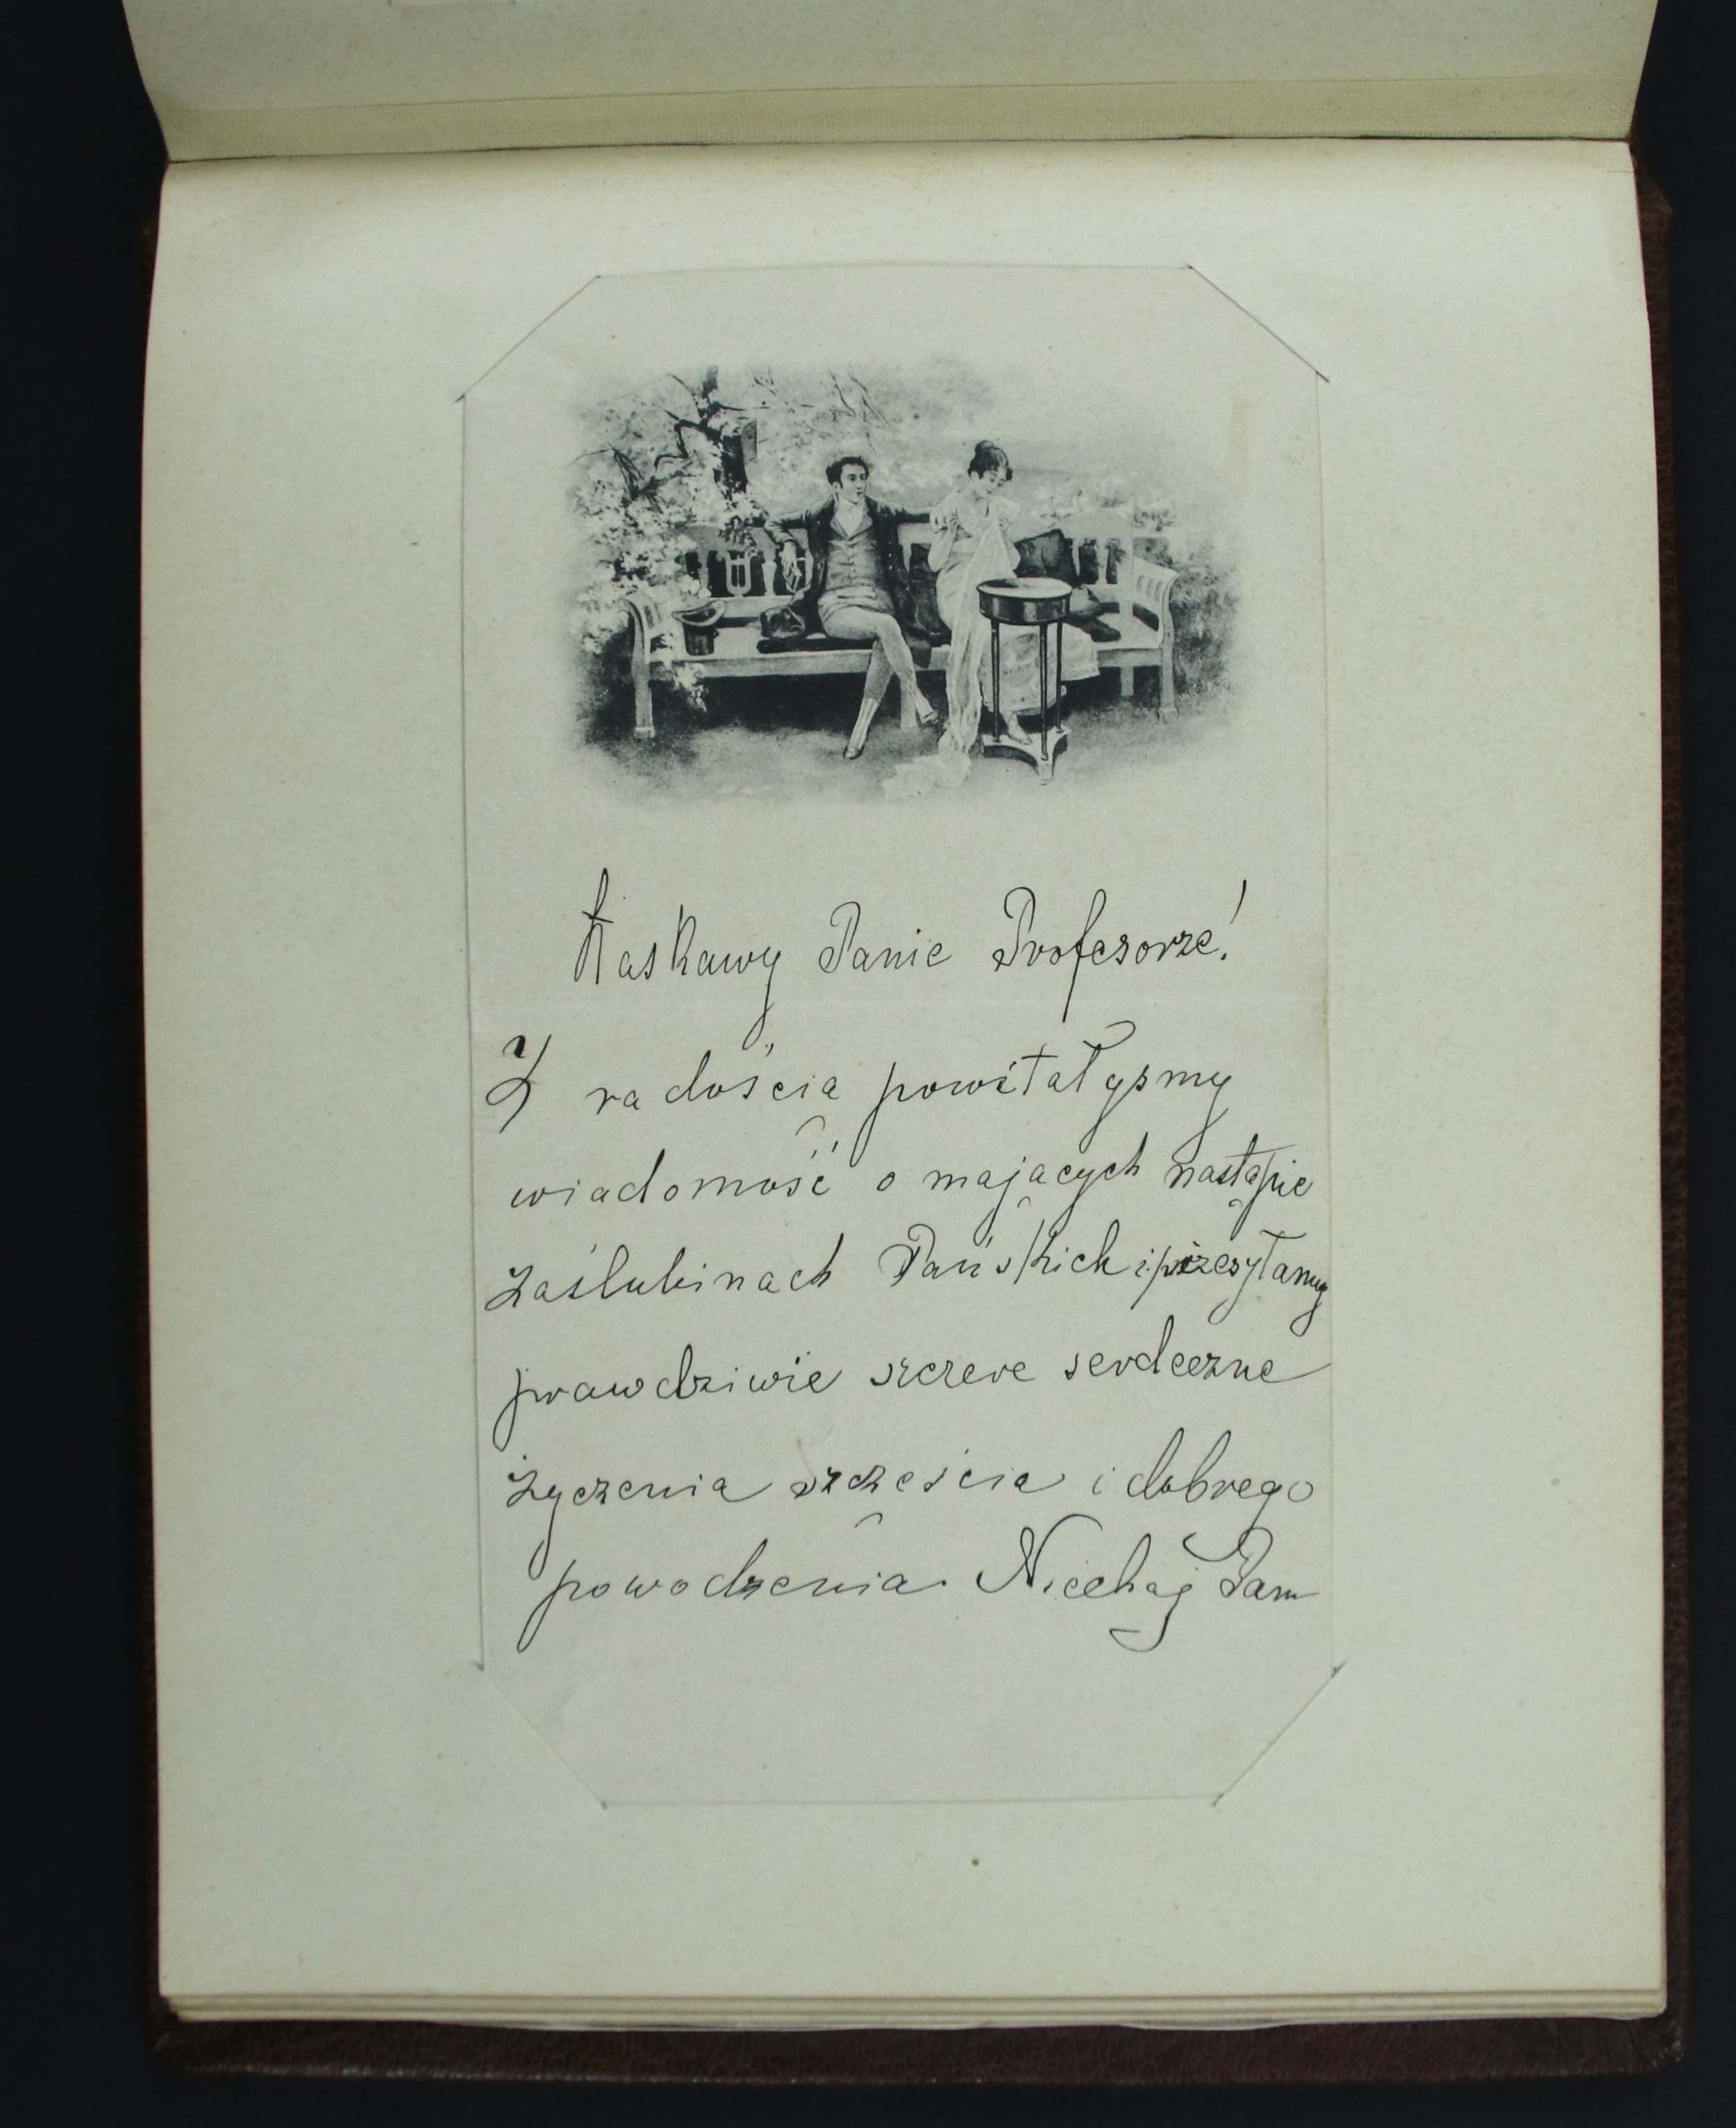 Łaskawy Panie Profesorze!
Z radością powitałyśmy
wiadomość o mających nastąpić
zaślubinach Pańskich i przesyłamy
prawdziwie szczere serdeczne
życzenia szczęścia i dobrego
powodzenia. Niechaj Pam